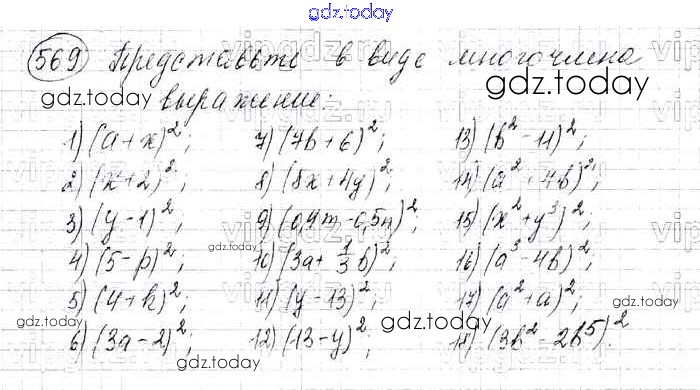 gdz.today
569 Представьте в виде многочлена
gdz.today
выражение:
gdz.today
1) (a+x)²; 7) (7b+6)²; 13) (b²-11)²;
2) (x+2)²; 8) (8x+4y)²; 14) (a²+4b)²;
3) (y-1)²; 9) (0,4m-0,5n)²; 15) (x²+y³)²;
gdz.today
4) (5-p)²; 10) (3a+1/3b)²; 16) (a³-4b)²;
gdz.today
5) (4+k)²; 11) (y-13)²; 17) (a²+a)²;
gdz.today
6) (3a-2)²; 12) (-13-y)²; 18) (3b²-2b⁵)².
gdz.today